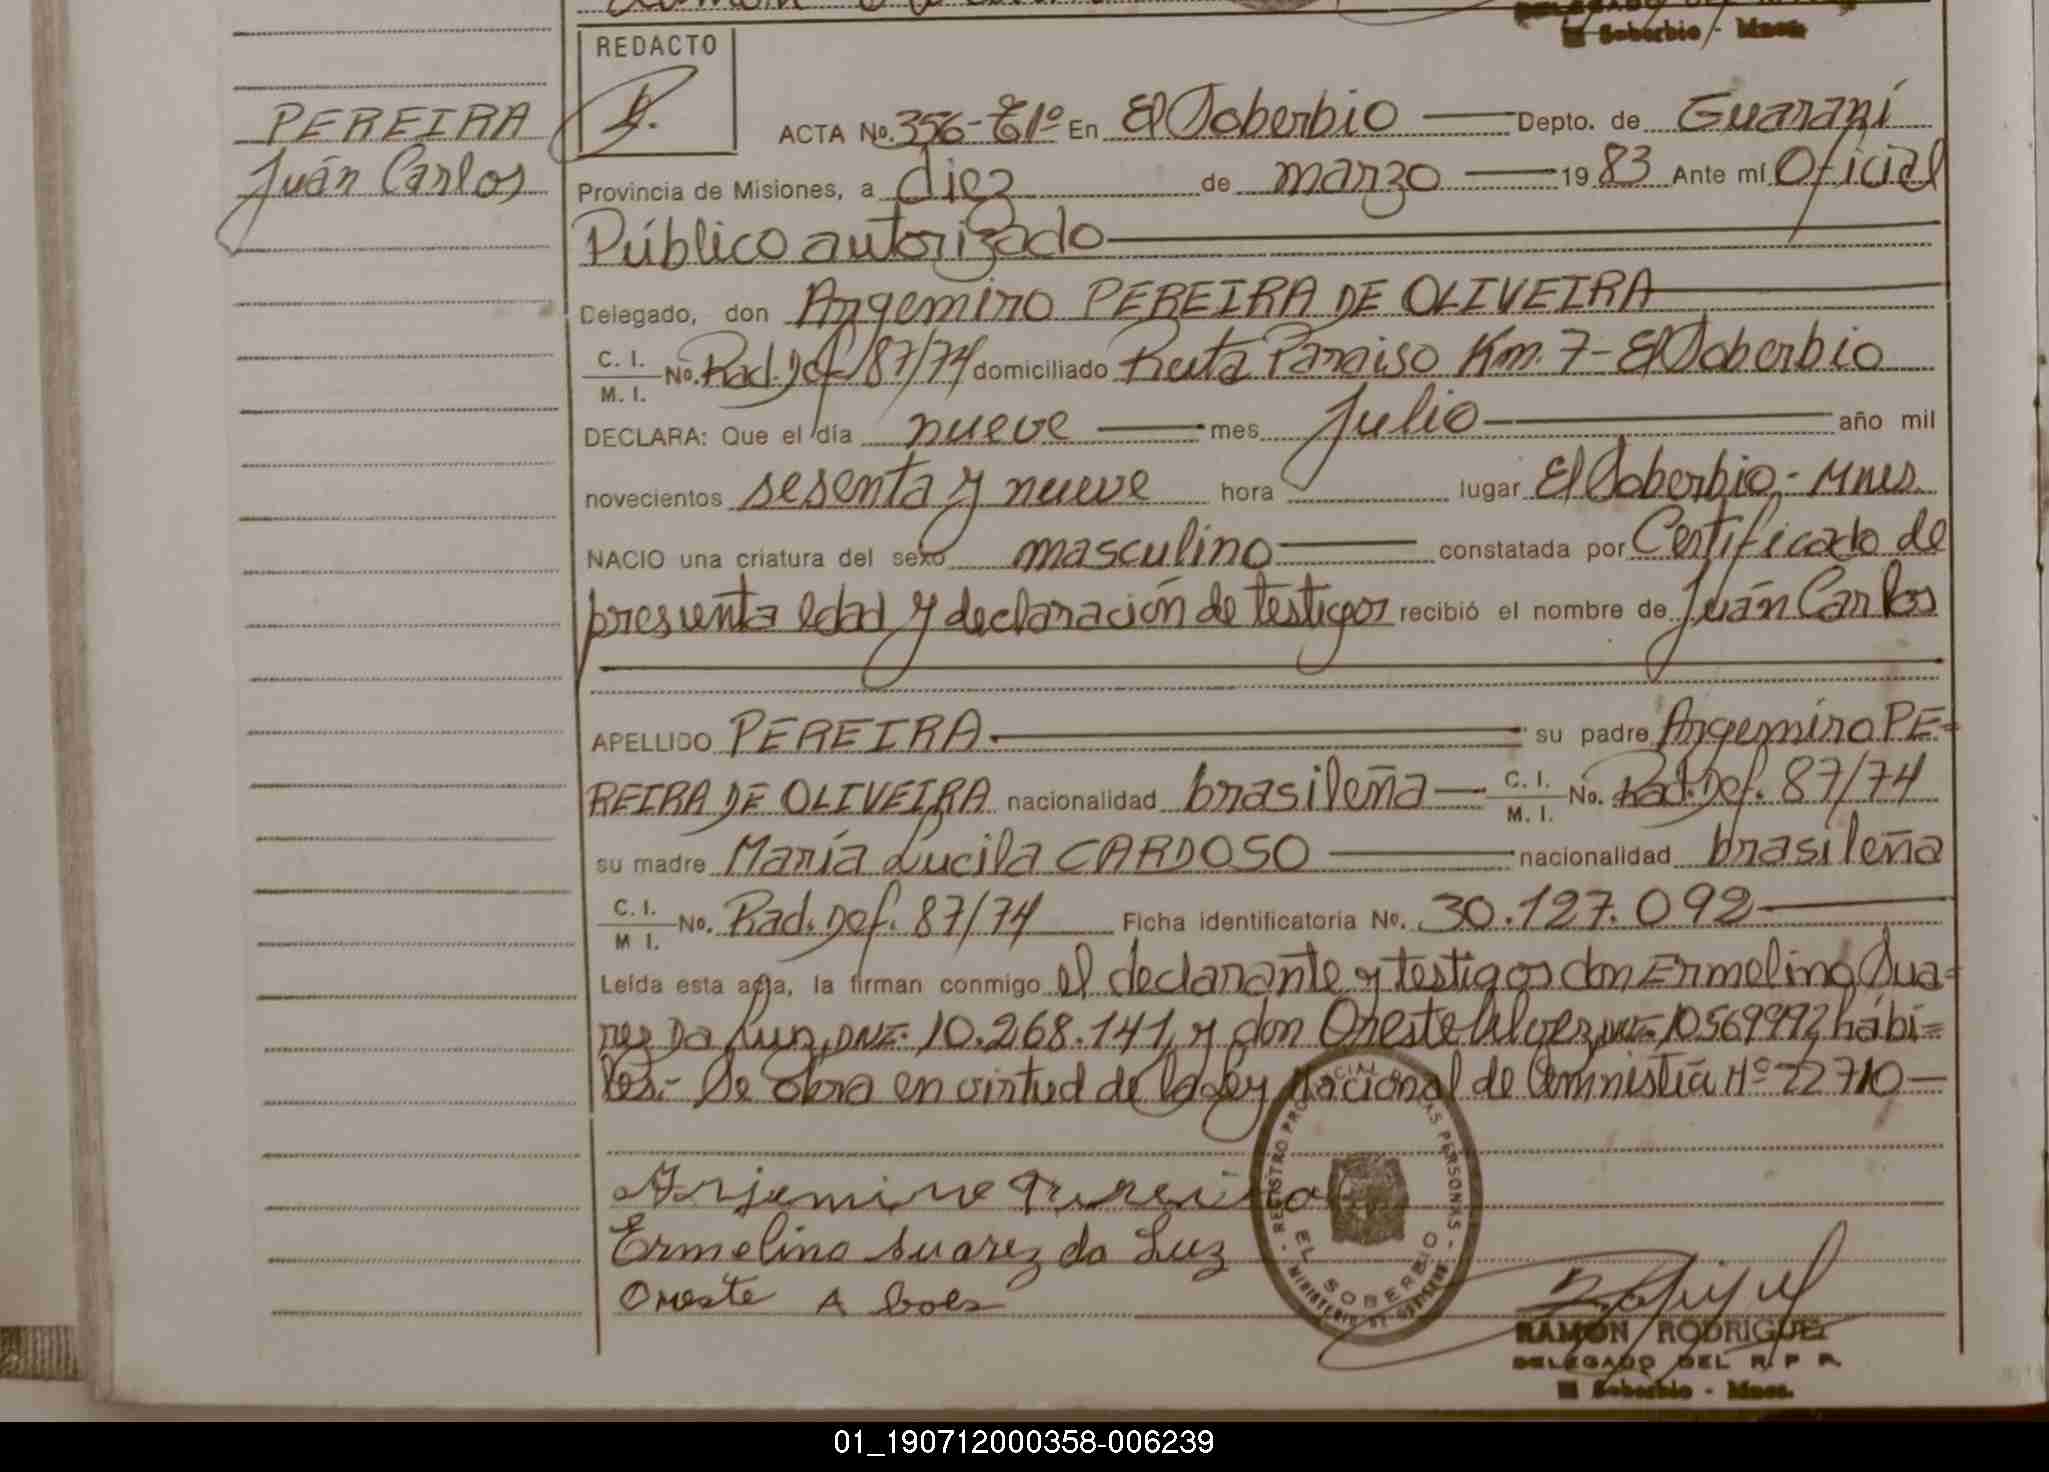 REDACTO
El Soberbio - Mnes.
PEREIRA
Juán Carlos
ACTA No. 356-T1º En El Soberbio Depto. de Guaraní
Provincia de Misiones, a diez de marzo 1983 Ante mí Oficial
Público autorizado
Delegado, don Argemiro PEREIRA DE OLIVEIRA
C. I.
M. I. No. Rad. Def. 87/74 domiciliado Ruta Paraiso Km. 7 - El Soberbio
DECLARA: Que el día nueve mes Julio año mil
novecientos sesenta y nueve hora lugar El Soberbio,- Mnes.
NACIO una criatura del sexo masculino constatada por Certificado de
presunta edad y declaración de testigos recibió el nombre de Juán Carlos
APELLIDO PEREIRA su padre Argemiro PE=
REIRA DE OLIVEIRA nacionalidad brasileña C. I.
M. I. No. Rad. Def. 87/74
su madre María Lucila CARDOSO nacionalidad brasileña
C. I.
M I. No. Rad. Def. 87/74 Ficha identificatoria No. 30.127.092
Leída esta acta, la firman conmigo el declarante y testigos don Ermelino Sua=
rez Da Luz, DNI. 10.268.141, y don Oreste Alvez, DNI. 10569992, hábi=
les.- Se obra en virtud de la Ley Nacional de Amnistía Nº 22710
Ermelino Suarez da Luz
Oreste
REGISTRO PROVINCIAL DE LAS PERSONAS
EL SOBERBIO
MINISTERIO DE GOBIERNO
RAMON RODRIGUEZ
DELEGADO DEL R. P. P.
El Soberbio - Mnes.
01_190712000358-006239